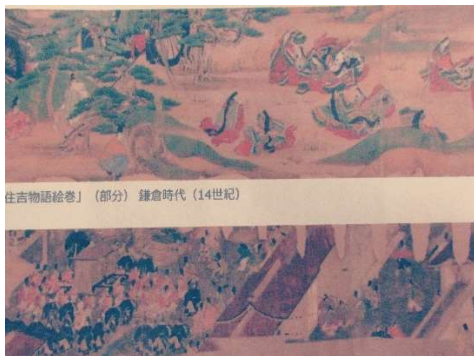 住吉物語絵巻」（部分） 鎌倉時代（14世紀）